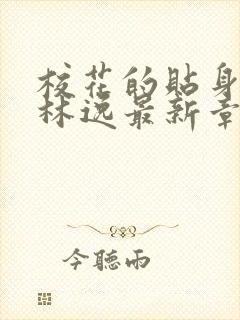 校花的貼身
林逸最新章
今聽雨